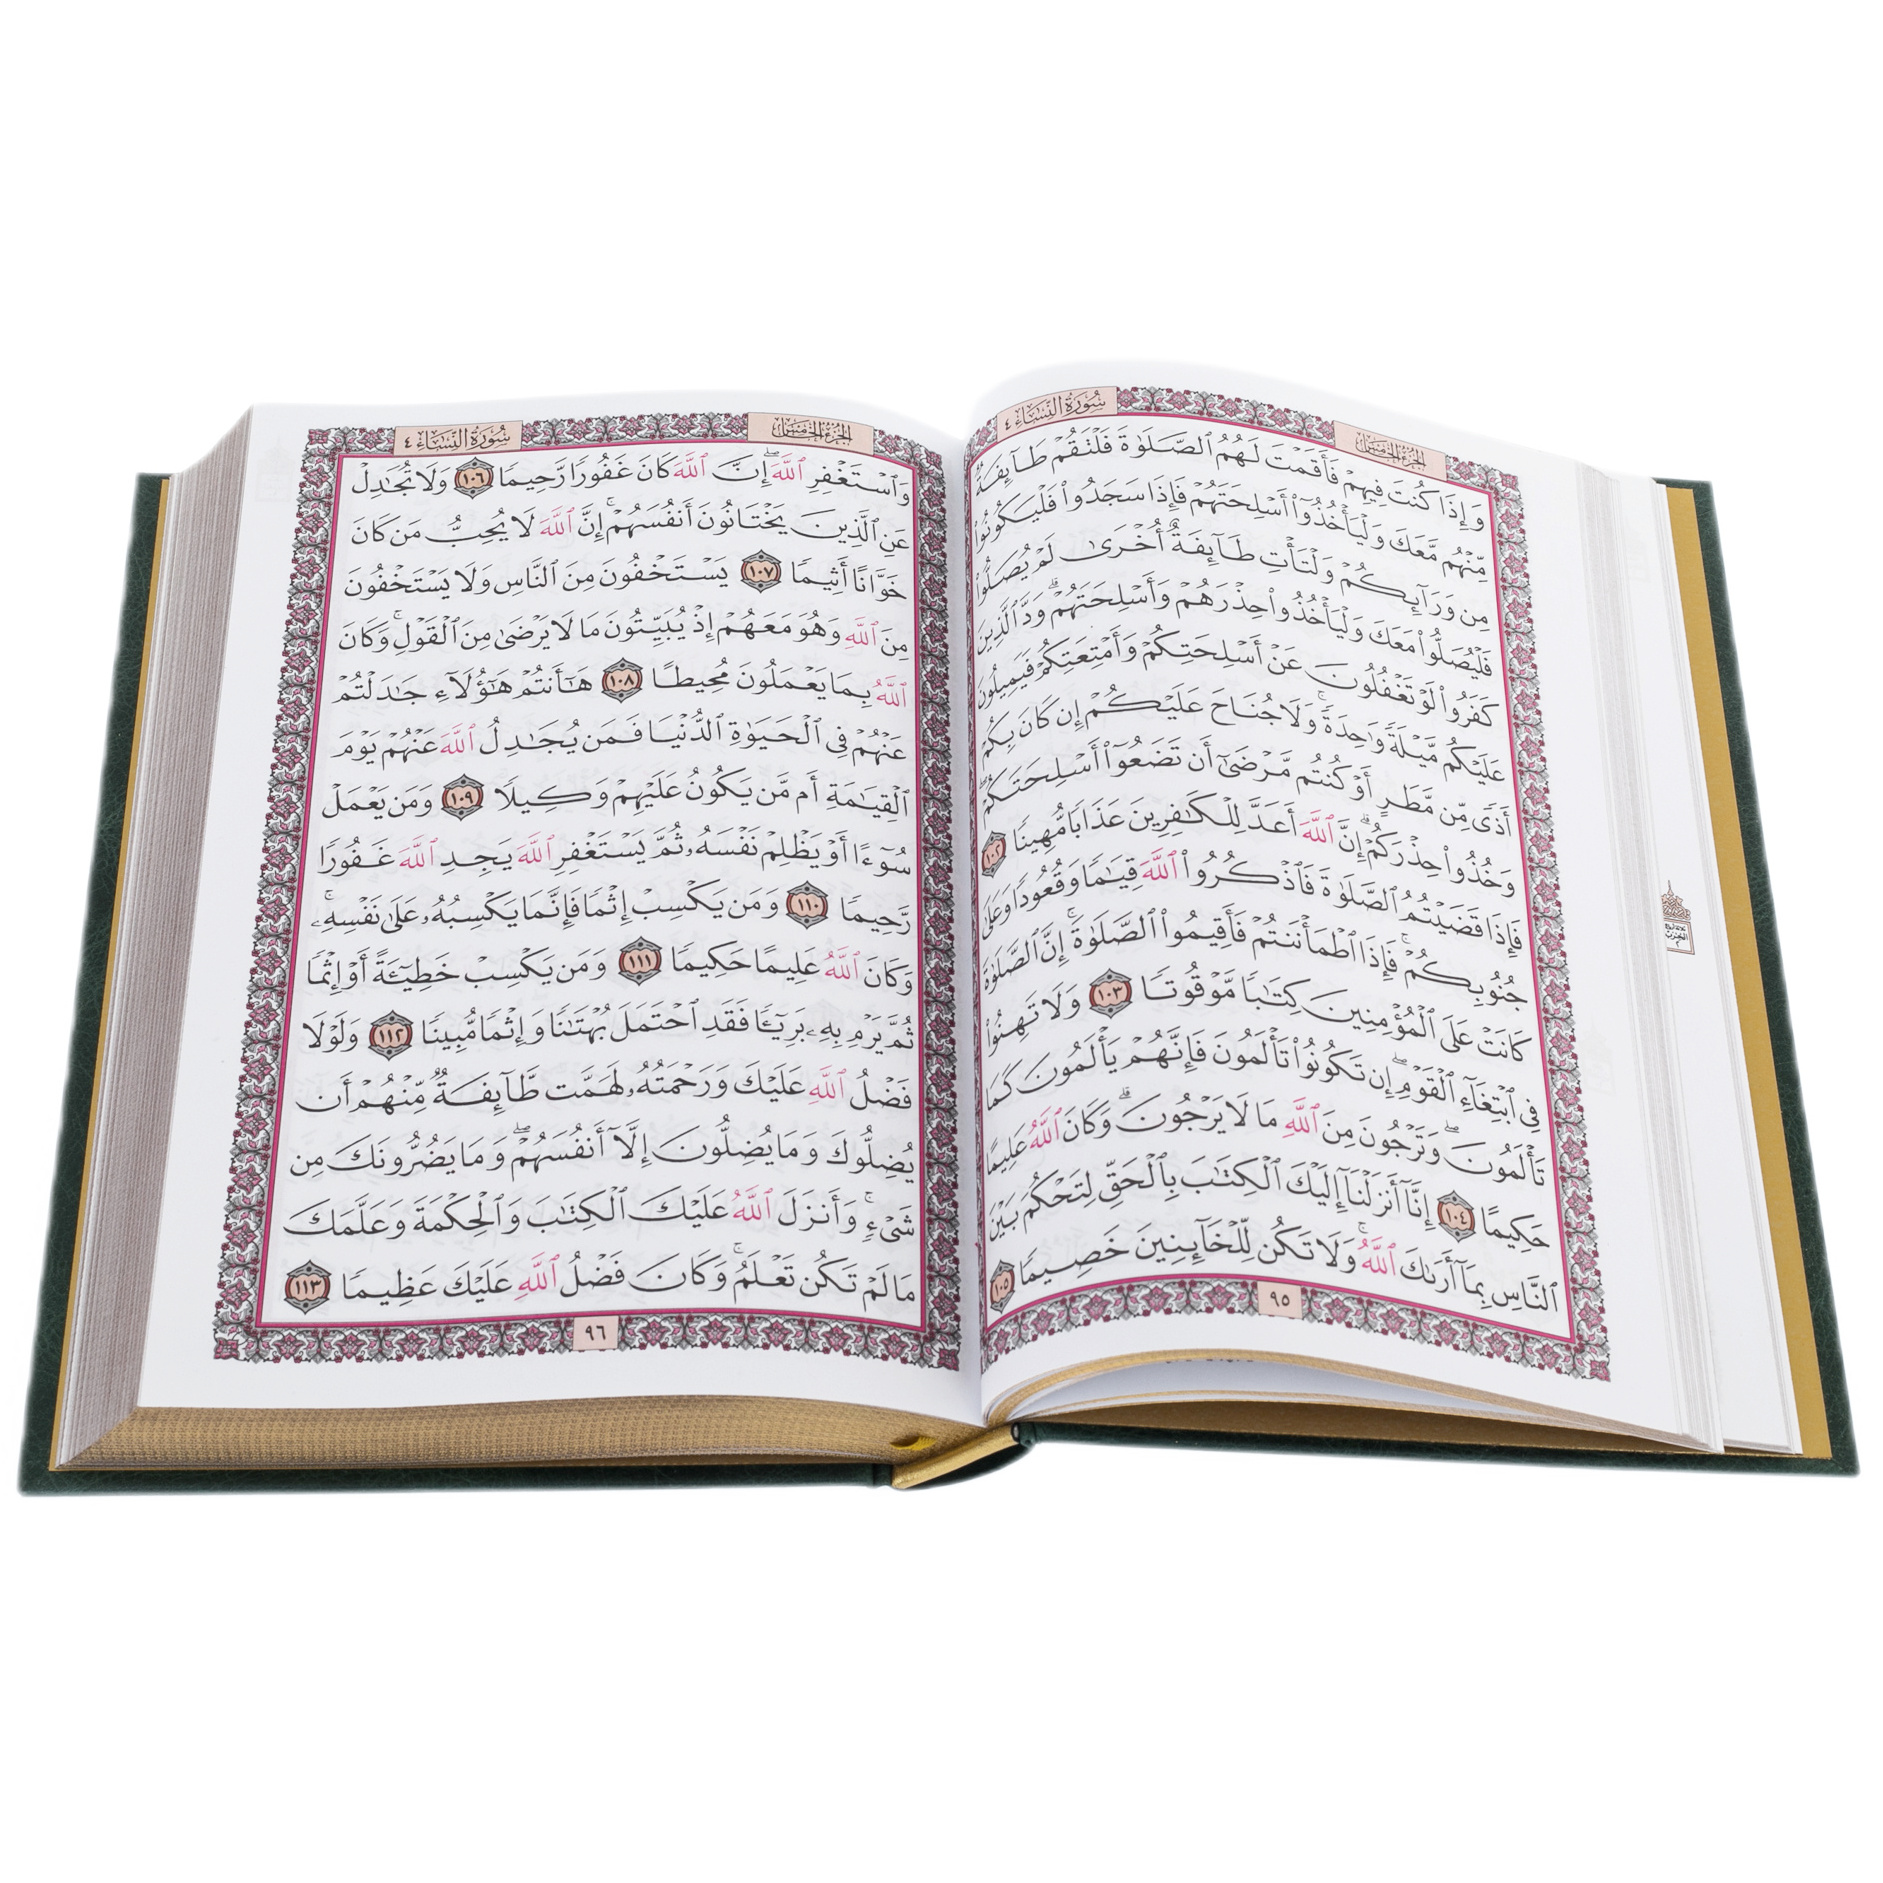 سُورَةُ النِّسَاءِ ٤
الجُزْءُ الخَامِسُ
وَإِذَا كُنتَ فِيهِمْ فَأَقَمْتَ لَهُمُ ٱلصَّلَوٰةَ فَلْتَقُمْ طَآئِفَةٌ
مِّنْهُم مَّعَكَ وَلْيَأْخُذُوٓا۟ أَسْلِحَتَهُمْ فَإِذَا سَجَدُوا۟ فَلْيَكُونُوا۟
مِن وَرَآئِكُمْ وَلْتَأْتِ طَآئِفَةٌ أُخْرَىٰ لَمْ يُصَلُّوا۟
فَلْيُصَلُّوا۟ مَعَكَ وَلْيَأْخُذُوا۟ حِذْرَهُمْ وَأَسْلِحَتَهُمْ ۗ وَدَّ ٱلَّذِينَ
كَفَرُوا۟ لَوْ تَغْفُلُونَ عَنْ أَسْلِحَتِكُمْ وَأَمْتِعَتِكُمْ فَيَمِيلُونَ
عَلَيْكُم مَّيْلَةً وَٰحِدَةً ۚ وَلَا جُنَاحَ عَلَيْكُمْ إِن كَانَ بِكُمْ
أَذًى مِّن مَّطَرٍ أَوْ كُنتُم مَّرْضَىٰٓ أَن تَضَعُوٓا۟ أَسْلِحَتَكُمْ ۖ
وَخُذُوا۟ حِذْرَكُمْ ۗ إِنَّ ٱللَّهَ أَعَدَّ لِلْكَـٰفِرِينَ عَذَابًا مُّهِينًا ١٠٢
فَإِذَا قَضَيْتُمُ ٱلصَّلَوٰةَ فَٱذْكُرُوا۟ ٱللَّهَ قِيَـٰمًا وَقُعُودًا وَعَلَىٰ
جُنُوبِكُمْ ۚ فَإِذَا ٱطْمَأْنَنتُمْ فَأَقِيمُوا۟ ٱلصَّلَوٰةَ ۚ إِنَّ ٱلصَّلَوٰةَ
كَانَتْ عَلَى ٱلْمُؤْمِنِينَ كِتَـٰبًا مَّوْقُوتًا ١٠٣ وَلَا تَهِنُوا۟
فِى ٱبْتِغَآءِ ٱلْقَوْمِ ۖ إِن تَكُونُوا۟ تَأْلَمُونَ فَإِنَّهُمْ يَأْلَمُونَ كَمَا
تَأْلَمُونَ ۖ وَتَرْجُونَ مِنَ ٱللَّهِ مَا لَا يَرْجُونَ ۗ وَكَانَ ٱللَّهُ عَلِيمًا
حَكِيمًا ١٠٤ إِنَّآ أَنزَلْنَآ إِلَيْكَ ٱلْكِتَـٰبَ بِٱلْحَقِّ لِتَحْكُمَ بَيْنَ
ٱلنَّاسِ بِمَآ أَرَىٰكَ ٱللَّهُ ۚ وَلَا تَكُن لِّلْخَآئِنِينَ خَصِيمًا ١٠٥
٩٥
سُورَةُ النِّسَاءِ ٤
الجُزْءُ الخَامِسُ
وَٱسْتَغْفِرِ ٱللَّهَ ۖ إِنَّ ٱللَّهَ كَانَ غَفُورًا رَّحِيمًا ١٠٦ وَلَا تُجَـٰدِلْ
عَنِ ٱلَّذِينَ يَخْتَانُونَ أَنفُسَهُمْ ۚ إِنَّ ٱللَّهَ لَا يُحِبُّ مَن كَانَ
خَوَّانًا أَثِيمًا ١٠٧ يَسْتَخْفُونَ مِنَ ٱلنَّاسِ وَلَا يَسْتَخْفُونَ
مِنَ ٱللَّهِ وَهُوَ مَعَهُمْ إِذْ يُبَيِّتُونَ مَا لَا يَرْضَىٰ مِنَ ٱلْقَوْلِ ۚ وَكَانَ
ٱللَّهُ بِمَا يَعْمَلُونَ مُحِيطًا ١٠٨ هَـٰٓأَنتُمْ هَـٰٓؤُلَآءِ جَـٰدَلْتُمْ
عَنْهُمْ فِى ٱلْحَيَوٰةِ ٱلدُّنْيَا فَمَن يُجَـٰدِلُ ٱللَّهَ عَنْهُمْ يَوْمَ
ٱلْقِيَـٰمَةِ أَم مَّن يَكُونُ عَلَيْهِمْ وَكِيلًا ١٠٩ وَمَن يَعْمَلْ
سُوٓءًا أَوْ يَظْلِمْ نَفْسَهُۥ ثُمَّ يَسْتَغْفِرِ ٱللَّهَ يَجِدِ ٱللَّهَ غَفُورًا
رَّحِيمًا ١١٠ وَمَن يَكْسِبْ إِثْمًا فَإِنَّمَا يَكْسِبُهُۥ عَلَىٰ نَفْسِهِۦ ۚ
وَكَانَ ٱللَّهُ عَلِيمًا حَكِيمًا ١١١ وَمَن يَكْسِبْ خَطِيٓـَٔةً أَوْ إِثْمًا
ثُمَّ يَرْمِ بِهِۦ بَرِيٓـًٔا فَقَدِ ٱحْتَمَلَ بُهْتَـٰنًا وَإِثْمًا مُّبِينًا ١١٢ وَلَوْلَا
فَضْلُ ٱللَّهِ عَلَيْكَ وَرَحْمَتُهُۥ لَهَمَّت طَّآئِفَةٌ مِّنْهُمْ أَن
يُضِلُّوكَ وَمَا يُضِلُّونَ إِلَّآ أَنفُسَهُمْ ۖ وَمَا يَضُرُّونَكَ مِن
شَىْءٍ ۚ وَأَنزَلَ ٱللَّهُ عَلَيْكَ ٱلْكِتَـٰبَ وَٱلْحِكْمَةَ وَعَلَّمَكَ
مَا لَمْ تَكُن تَعْلَمُ ۚ وَكَانَ فَضْلُ ٱللَّهِ عَلَيْكَ عَظِيمًا ١١٣
٩٦